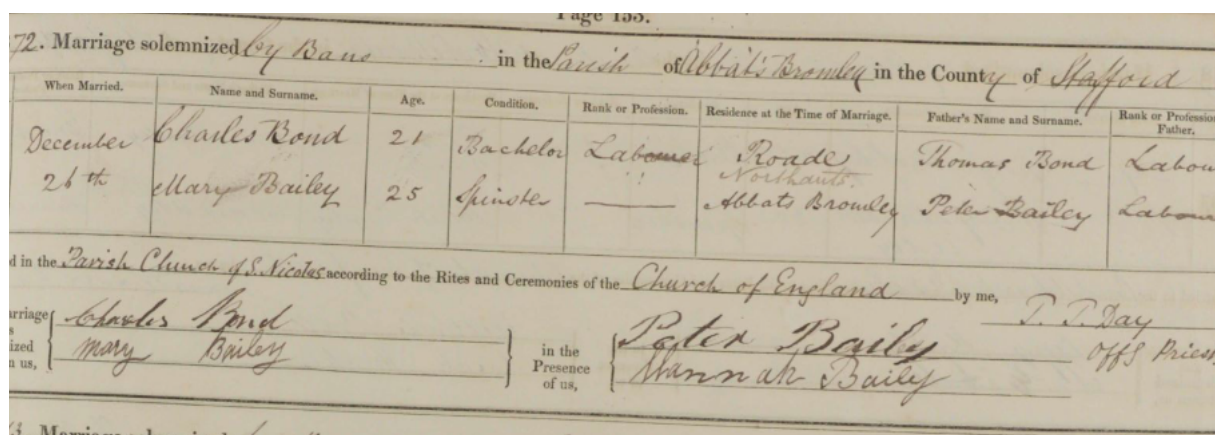 Page 155.
72. Marriage solemnized by Bans in the Parish of Abbat's Bromley in the County of Stafford
When Married. Name and Surname. Age. Condition. Rank or Profession. Residence at the Time of Marriage. Father's Name and Surname. Rank or Profession Father.
December Charles Bond 21 Bachelor Labourer Roade Thomas Bond Labou
Northants.
26th Mary Bailey 25 Spinster Abbats Bromley Peter Bailey Labou
d in the Parish Church of S. Nicolas according to the Rites and Ceremonies of the Church of England by me,
T. T. Day
Offg Priest
arriage Charles Bond
s
ized Mary Bailey
n us,
in the Presence of us,
Peter Baily
Hannah Baily
3. Marriage